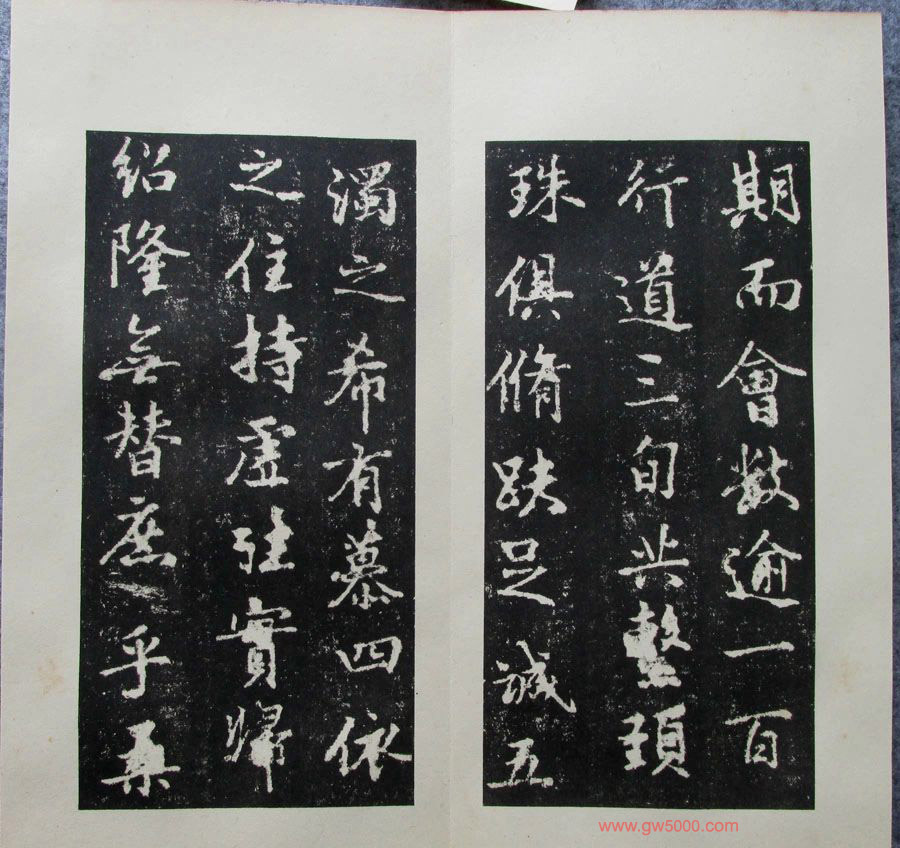 期而會數逾一百
行道三旬共繫頸
珠俱脩趺足誠五
濁之希有慕四依
之住持虛往實歸
紹隆無替庶乎桑
www.gw5000.com